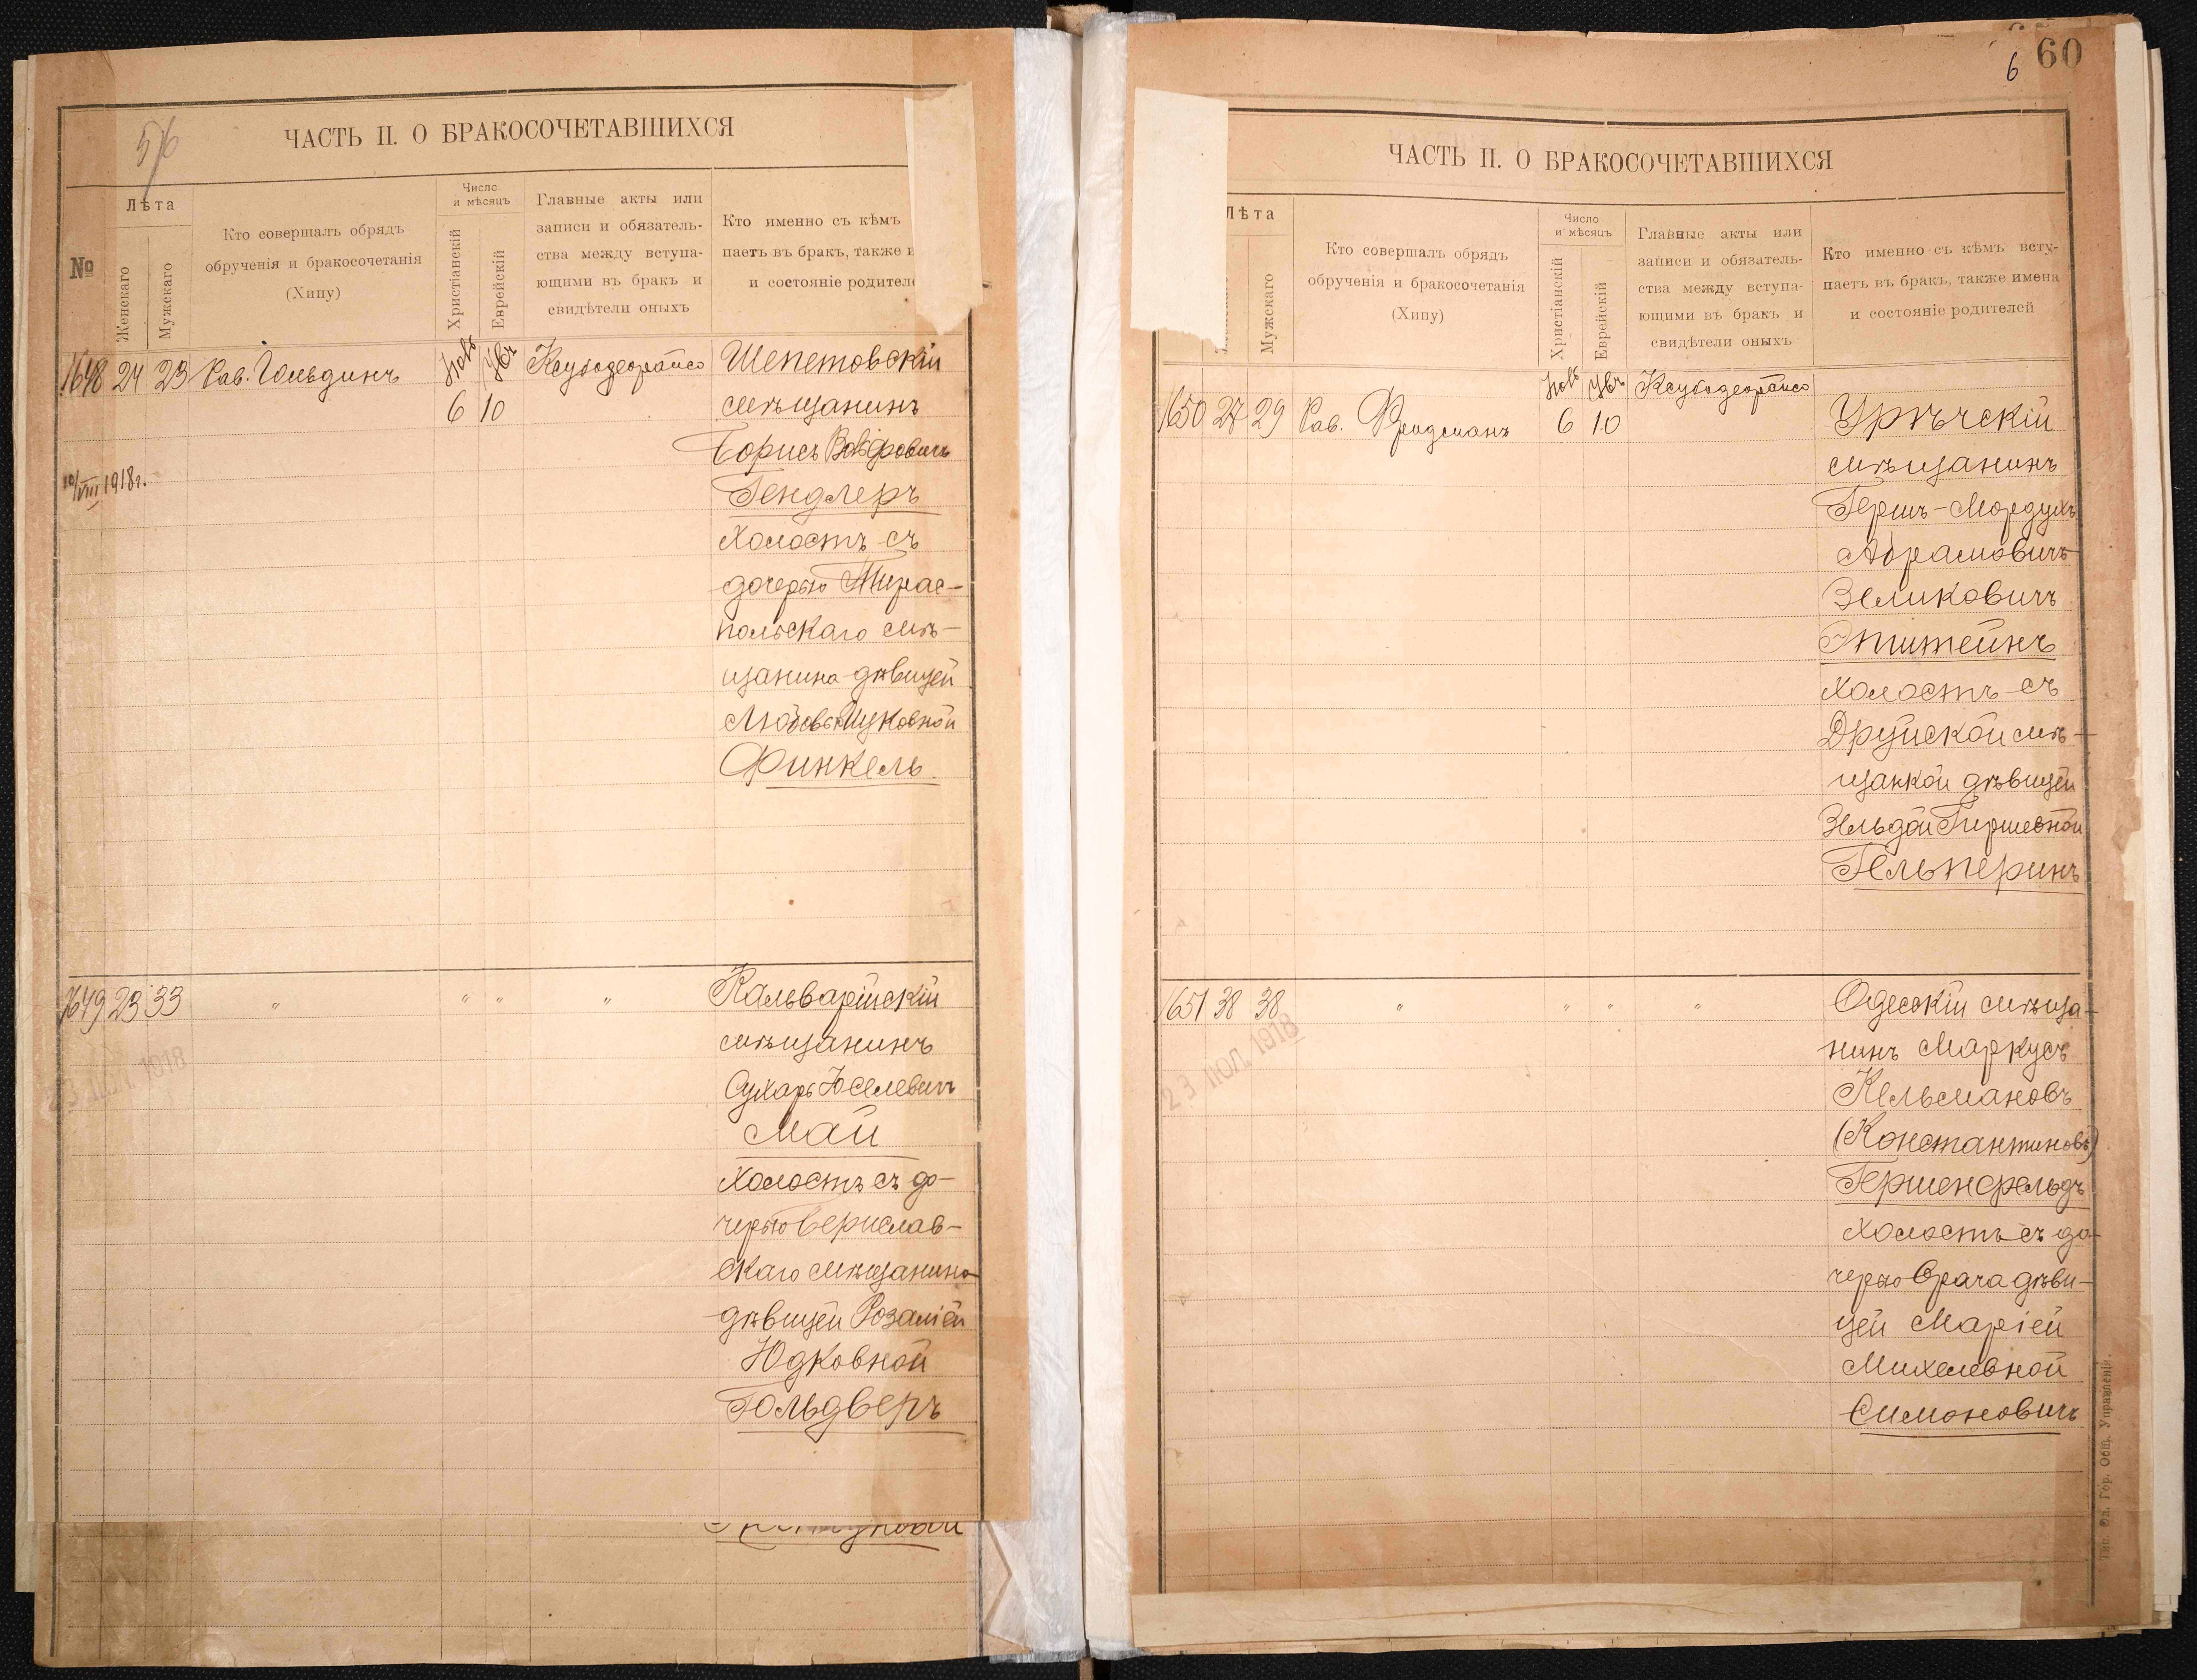 56
ЧАСТЬ II. О БРАКОСОЧЕТАВШИХСЯ
№
Лѣта
Женскаго
Мужскаго
Кто совершалъ обрядъ
обрученія и бракосочетанія
(Хипу)
Число
и мѣсяцъ
Христіанскій
Еврейскій
Главные акты или
записи и обязатель-
ства между вступа-
ющими въ бракъ и
свидѣтели оныхъ
Кто именно съ кѣмъ
паетъ въ бракъ, также и
и состояніе родителе
1648 24 23 Рав. Гольдинъ
6 10
10/VIII 1918 г.
Шепетовскій
мѣщанинъ
Борисъ Вольфовичъ
Гендлеръ
холостъ съ
дочерью Тирас-
польскаго мѣ-
щанина дѣвицей
Любовью Ицковной
Финкель
1649 23 33 " " " "
23 ІЮЛ. 1918
Кальварійскій
мѣщанинъ
Сухарь Іоселевичъ
Май
холостъ съ до-
черью Берислав-
скаго мѣщанина
дѣвицей Розаліей
Юдковной
Гольдверъ
6 60
ЧАСТЬ II. О БРАКОСОЧЕТАВШИХСЯ
Лѣта
Мужскаго
Кто совершалъ обрядъ
обрученія и бракосочетанія
(Хипу)
Число
и мѣсяцъ
Христіанскій
Еврейскій
Главные акты или
записи и обязатель-
ства между вступа-
ющими въ бракъ и
свидѣтели оныхъ
Кто именно съ кѣмъ всту-
паетъ въ бракъ, также имена
и состояніе родителей
1650 27 29 Рав. Фридманъ
6 10
Урѣчскій
мѣщанинъ
Гершъ-Мордухъ
Абрамовичъ
Зеликовичъ
Эпштейнъ
холостъ съ
Друйской мѣ-
щанкой дѣвицей
Зельдой Гиршевной
Гельперинъ
1651 38 38 " " " "
23 ІЮЛ. 1918
Одесскій мѣща-
нинъ Маркусъ
Кельмановъ
(Константиновъ)
Гершенфельдъ
холостъ съ до-
черью врача дѣви-
цей Маріей
Михелевной
Симоновичъ
Тип. Од. Гор. Общ. Управленія.